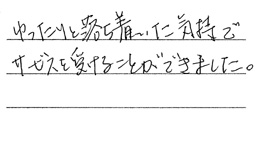 ゆったりと落ち着いた気持で
サービスを受けることができました。